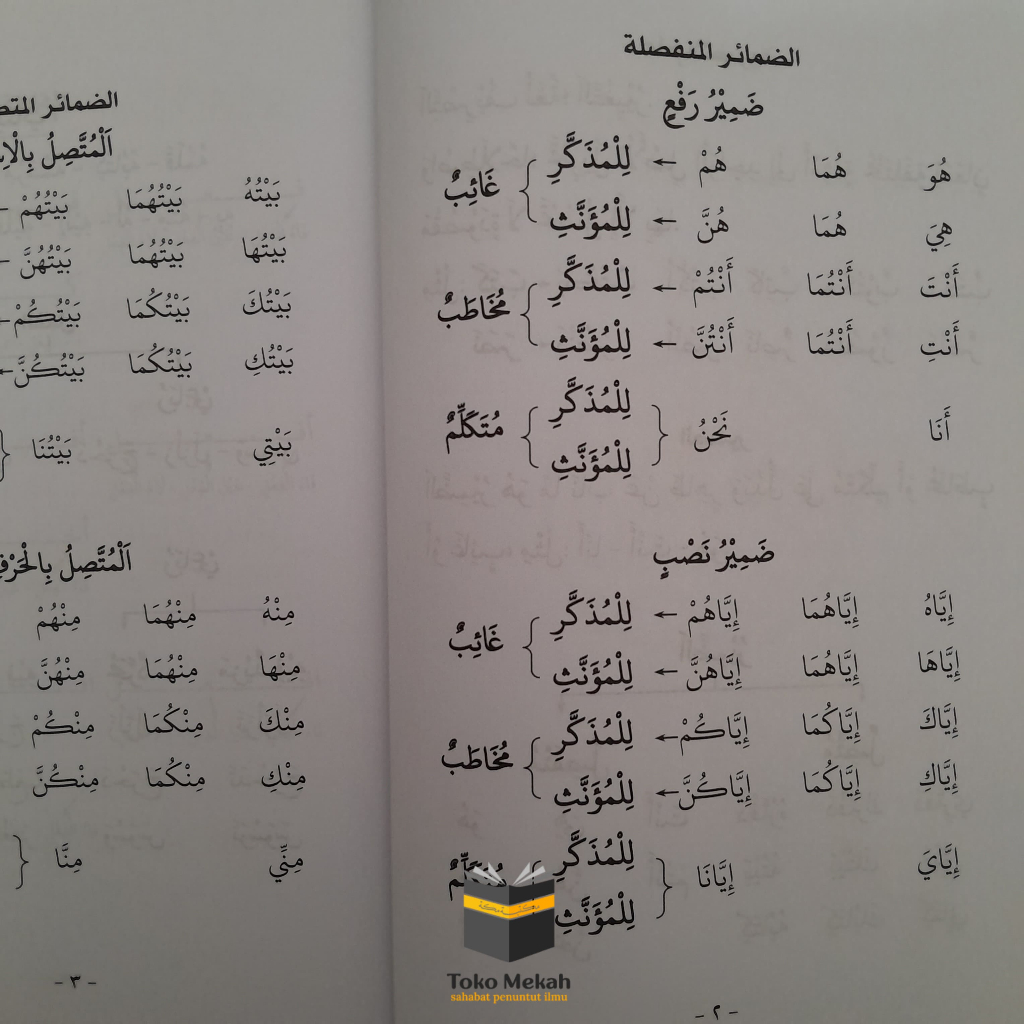 الضمائر المنفصلة
ضَمِيْرُ رَفْعٍ
هُوَ هُمَا هُمْ ← لِلْمُذَكَّرِ
هِيَ هُمَا هُنَّ ← لِلْمُؤَنَّثِ
غَائِبٌ
أَنْتَ أَنْتُمَا أَنْتُمْ ← لِلْمُذَكَّرِ
أَنْتِ أَنْتُمَا أَنْتُنَّ ← لِلْمُؤَنَّثِ
مُخَاطَبٌ
أَنَا نَحْنُ } لِلْمُذَكَّرِ
لِلْمُؤَنَّثِ
مُتَكَلِّمٌ
ضَمِيْرُ نَصْبٍ
إِيَّاهُ إِيَّاهُمَا إِيَّاهُمْ ← لِلْمُذَكَّرِ
إِيَّاهَا إِيَّاهُمَا إِيَّاهُنَّ ← لِلْمُؤَنَّثِ
غَائِبٌ
إِيَّاكَ إِيَّاكُمَا إِيَّاكُمْ ← لِلْمُذَكَّرِ
إِيَّاكِ إِيَّاكُمَا إِيَّاكُنَّ ← لِلْمُؤَنَّثِ
مُخَاطَبٌ
إِيَّايَ إِيَّانَا } لِلْمُذَكَّرِ
لِلْمُؤَنَّثِ
- ٢ -
الضمائر
اَلْمُتَّصِلُ
بَيْتُهُ بَيْتُهُمَا بَيْتُهُمْ
بَيْتُهَا بَيْتُهُمَا بَيْتُهُنَّ ←
بَيْتُكَ بَيْتُكُمَا بَيْتُكُمْ ←
بَيْتُكِ بَيْتُكُمَا بَيْتُكُنَّ ←
بَيْتِي بَيْتُنَا }
اَلْمُتَّصِلُ
مِنْهُ مِنْهُمَا مِنْهُمْ
مِنْهَا مِنْهُمَا مِنْهُنَّ
مِنْكَ مِنْكُمَا مِنْكُمْ
مِنْكِ مِنْكُمَا مِنْكُنَّ
مِنِّي مِنَّا }
- ٣ -
Toko Mekah
sahabat penuntut ilmu